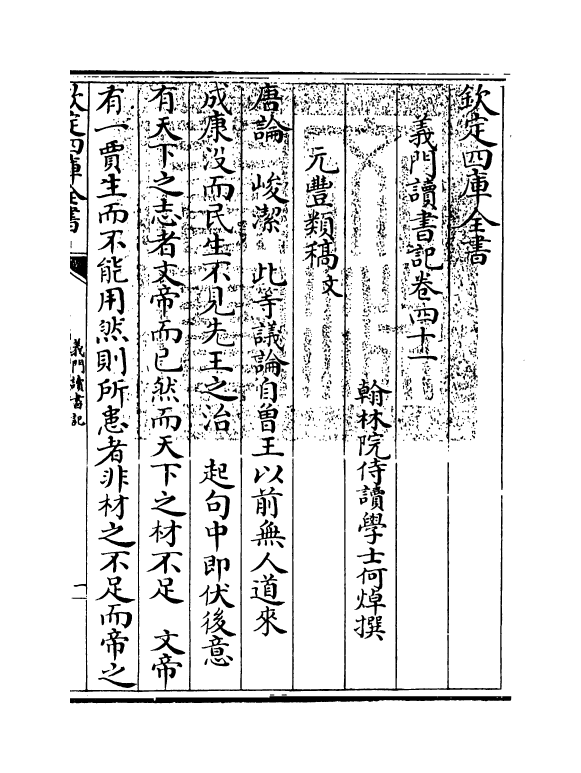 欽定四庫全書
義門讀書記卷四十一
翰林院侍讀學士何焯撰
元豐類稿文
唐論　峻潔　此等議論自曾王以前無人道來
成康沒而民生不見先王之治　起句中即伏後意
有天下之志者文帝而已然而天下之材不足　文帝
有一賈生而不能用然則所患者非材之不足而帝之
欽定四庫全書
義門讀書記
一